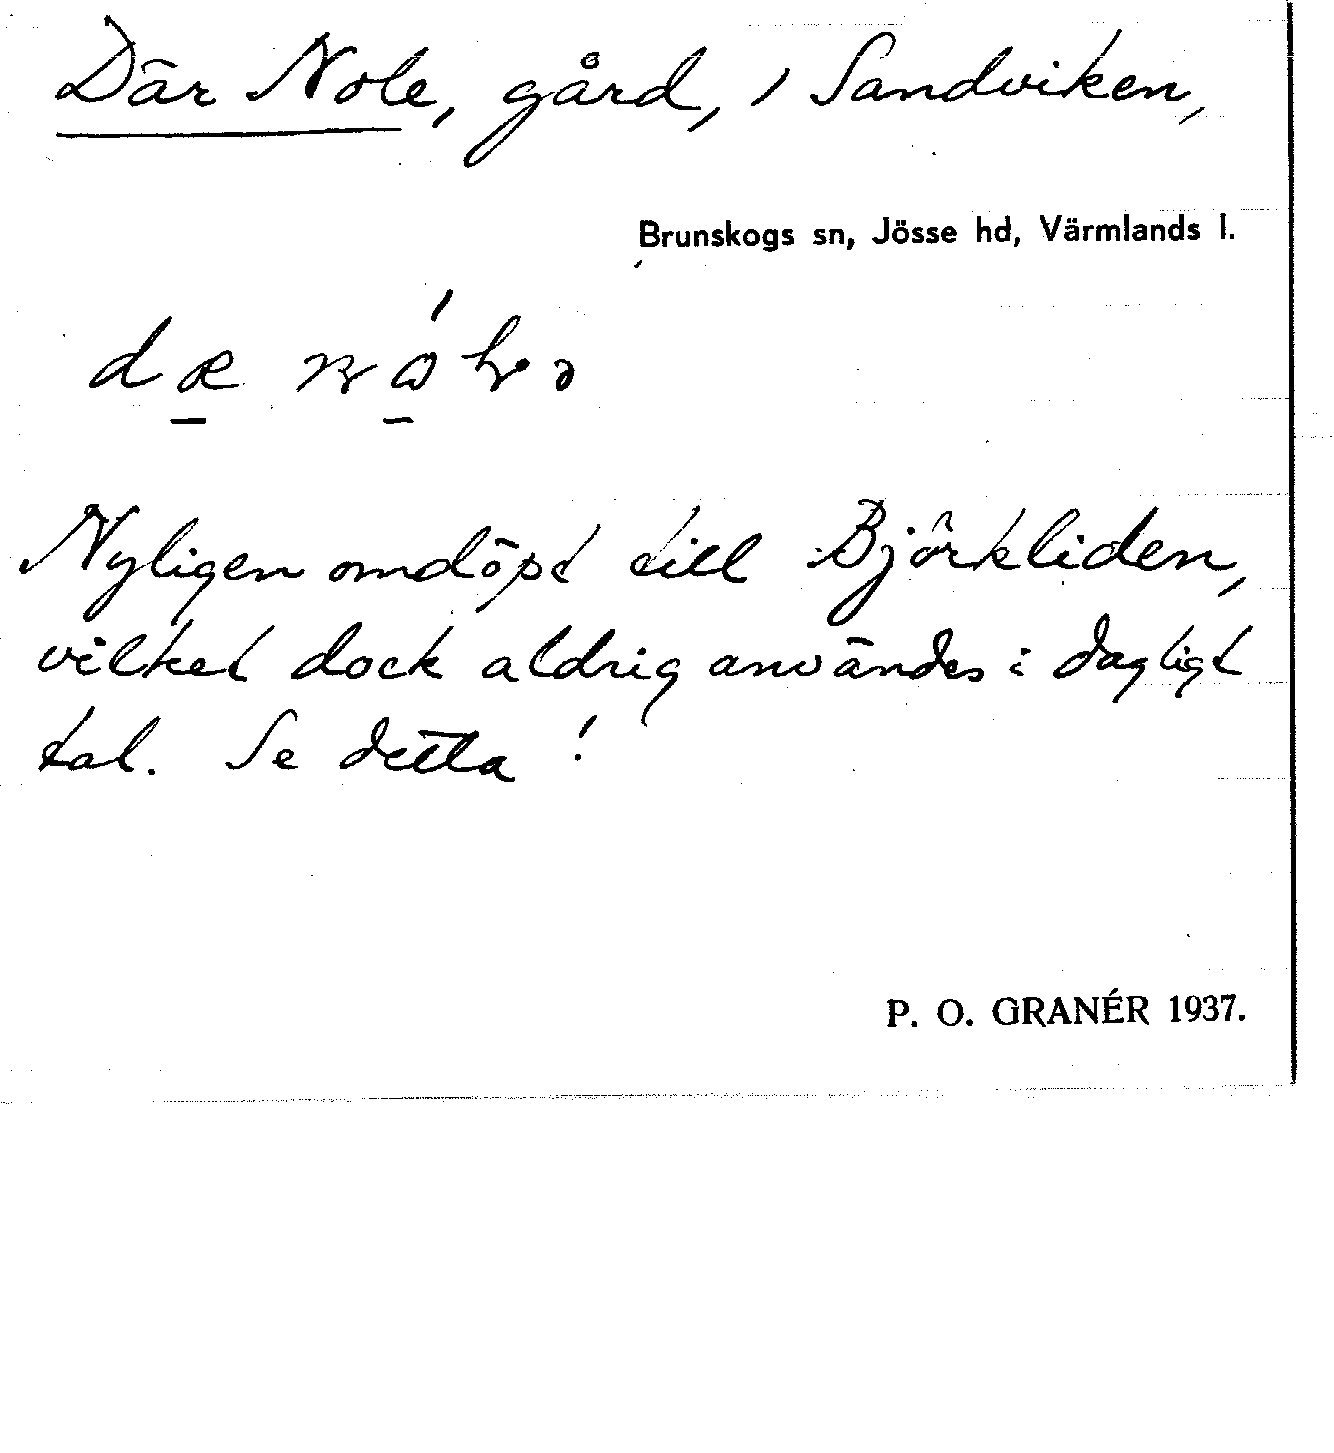 Där Nole, gård, i Sandviken,
Brunskogs sn, Jösse hd, Värmlands l.
Nyligen omdöpt till Björkliden,
vilket dock aldrig användes i dagligt
tal. Se detta!
P. O. GRANÉR 1937.